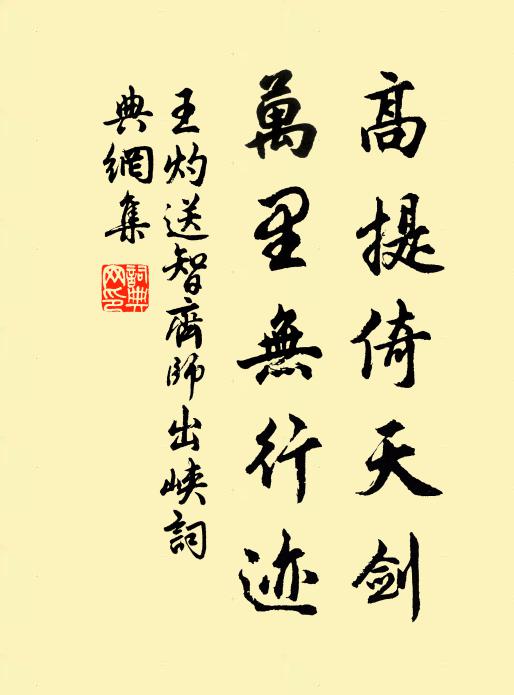 高提倚天劍
萬里無行迹
王灼送智齊師出峽詞
典網集
詞典
网印